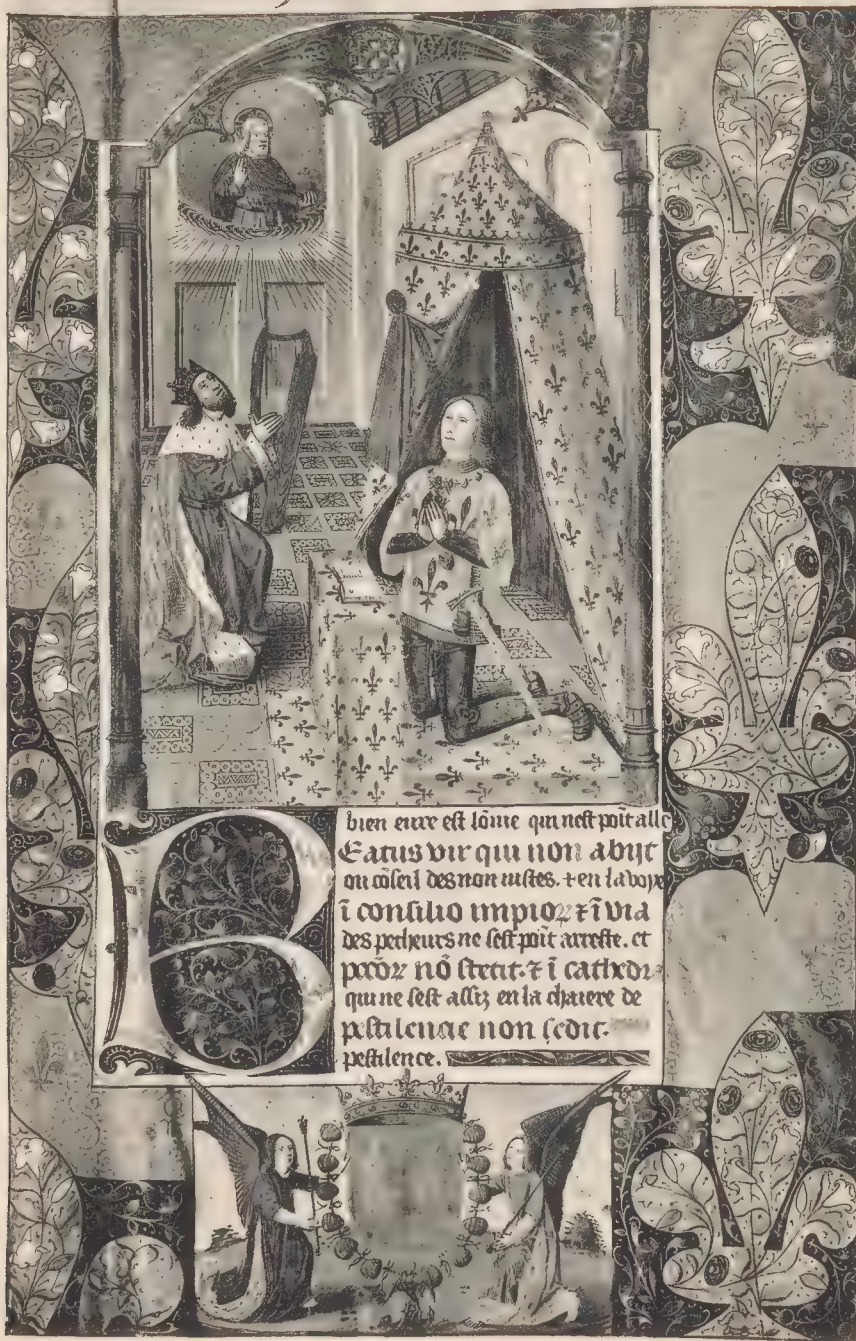 bien eure est lōme qui nest poīt alle
Beatus vir qui non abijt
ou cōseil des non iustes. ⁊ en la voye
ī consilio impioꝝ ⁊ ī via
des pecheurs ne sest poīt arreste. et
pccōꝝ nō stetit. ⁊ ī cathedr
qui ne sest assiz en la chaiere de
pestilencie non sedit.
pestilence.